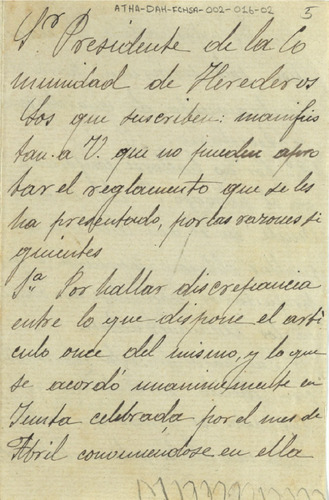 ATHA-DAH-FCHSA-002-016-02
5
Sr Presidente de la Co
munidad de Herederos
Los que suscriben: manifies
tan a V. que no pueden apro
bar el reglamento que se les
ha presentado, por las razones si
guientes
1ª Por hallar discrepancia
entre lo que dispone el arti
culo once del mismo, y lo que
se acordó unanimemente en
Junta celebrada por el mes de
Abril conviniéndose en ella